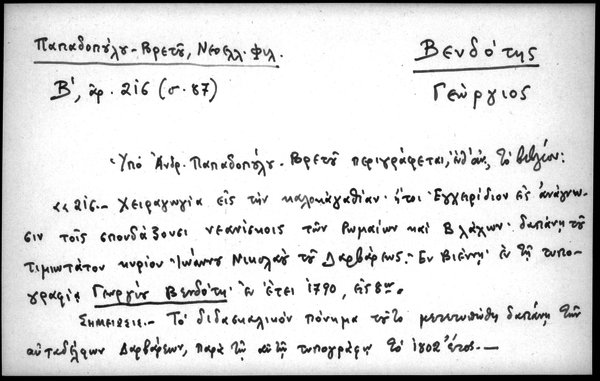 Παπαδοπούλου-Βρετοῦ, Νεοελλ. Φιλ.
Βενδότης
Β', ἀρ. 216 (σ. 87)
Γεώργιος
Ὑπὸ Ἀνδρ. Παπαδοπούλου-Βρετοῦ περιγράφεται, τὸ βιβλίον:
«216.- Χειραγωγία εἰς τὴν καλοκἀγαθίαν· ἤτοι Ἐγχειρίδιον εἰς ἀνάγνω-
σιν τοῖς σπουδάζουσι νεανίσκοις τῶν Ρωμαίων καὶ Βλάχων· δαπάνῃ τοῦ
τιμιωτάτου κυρίου Ἰωάννου Νικολάου τοῦ Δαρβάρεως.- Ἐν Βιέννῃ· ἐν τῇ τυπο-
γραφίᾳ Γεωργίου Βενδότῃ· ἐν ἔτει 1790, εἰς 8ον.
Σημείωσις.- Τὸ διδασκαλικὸν πόνημα τοῦτο μετετυπώθη δαπάνῃ τῶν
αὐταδέλφων Δαρβάρεων, παρὰ τῇ αὐτῇ τυπογραφίᾳ τὸ 1802 ἔτος.—